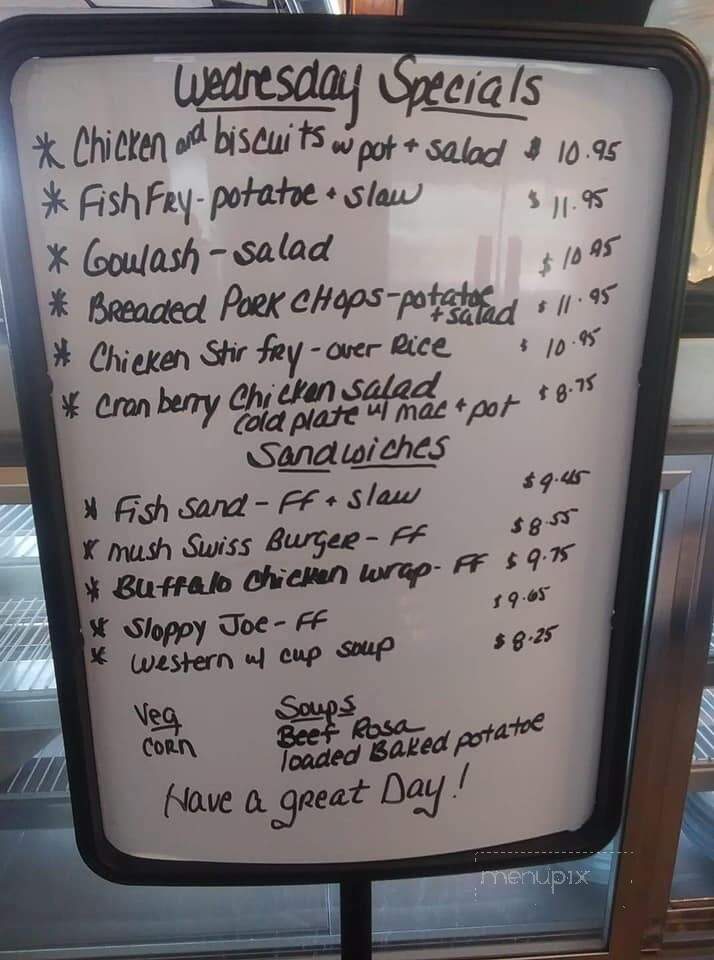 Wednesday Specials
* Chicken and biscuits w pot + salad $ 10.95
* Fish Fry - potatoe + slaw $ 11.95
* Goulash - salad $ 10.95
* Breaded Pork Chops - potatoe + salad $ 11.95
* Chicken Stir fry - over Rice $ 10.95
* Cranberry Chicken salad $ 8.75
cold plate w/ mac + pot
Sandwiches
* Fish sand - FF + slaw $ 9.45
* mush Swiss Burger - FF $ 8.55
* Buffalo Chicken wrap - FF $ 9.75
* Sloppy Joe - FF $ 9.65
* Western w/ cup soup $ 8.25
Veg Soups
CORN Beef Rosa
loaded Baked potatoe
Have a great Day!
menupix